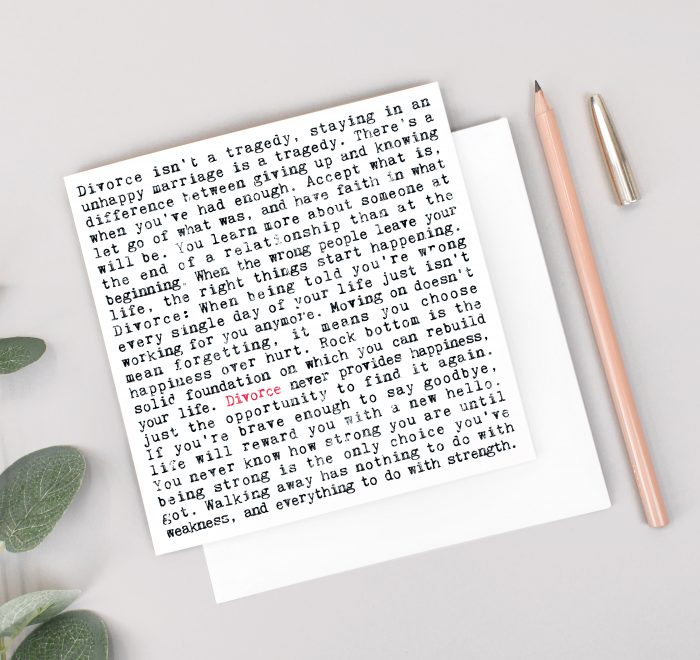 Divorce isn't a tragedy, staying in an
unhappy marriage is a tragedy. There's a
difference between giving up and knowing
when you've had enough. Accept what is,
let go of what was, and have faith in what
will be. You learn more about someone at
the end of a relationship than at the
beginning. When the wrong people leave your
life, the right things start happening.
Divorce: When being told you're wrong
every single day of your life just isn't
working for you anymore. Moving on doesn't
mean forgetting, it means you choose
happiness over hurt. Rock bottom is the
solid foundation on which you can rebuild
your life. Divorce never provides happiness,
just the opportunity to find it again.
If you're brave enough to say goodbye,
life will reward you with a new hello.
You never know how strong you are until
being strong is the only choice you've
got. Walking away has nothing to do with
weakness, and everything to do with strength.